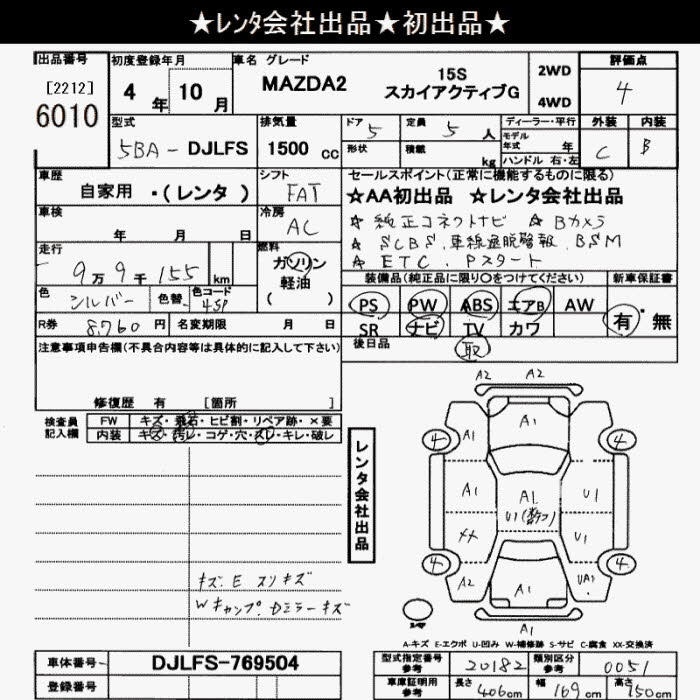 ★レンタ会社出品★初出品★
出品番号 初度登録年月 車名 グレード 評価点
[2212] 4年 10月 MAZDA2 15S 2WD 4
6010 スカイアクティブG 4WD
型式 排気量 ドア 5 定員 5人 ディーラー・平行 外装 内装
5BA-DJLFS 1500cc 形状 積載 kg モデル年式 年 C B
ハンドル 右・左
車歴 シフト セールスポイント(正常に機能するものに限る)
自家用・(レンタ) FAT ★AA初出品 ★レンタ会社出品
車検 冷房 ☆純正コネクトナビ ☆Bカメラ
年 月 日 AC ☆SCBS.車線逸脱警報.BSM
走行 燃料 ☆ETC.Pスタート
9万9千155km ガソリン 装備品(純正品に限り○をつけてください) 新車保証書
軽油 ( )
色 シルバー 色替 色コード 45P PS PW ABS エアB AW 有・無
R券 8760円 名変期限 月 日 SR ナビ TV カワ
注意事項申告欄(不具合内容等は具体的に記入して下さい) 後日品 取
修復歴 有 [箇所 ]
検査員記入欄 FW キズ・飛石・ヒビ割・リペア跡・×要
内装 キズ・汚レ・コゲ・穴・スレ・キレ・破レ
レンタ会社出品
A2 A2
A1
4 A1 4
A1 A1 U1
U1
XX U1
4 4
A2 A1 UA1
A1
キズ.E スリキズ
Wキャップ.Dミラーキズ
A-キズ E-エクボ U-凹み W-補修跡 S-サビ C-腐食 XX-交換済
車体番号 DJLFS-769504 型式指定番号 参考 20182 類別区分 参考 0051
登録番号 車庫証明用 参考 長さ 406cm 幅 169cm 高さ 150cm